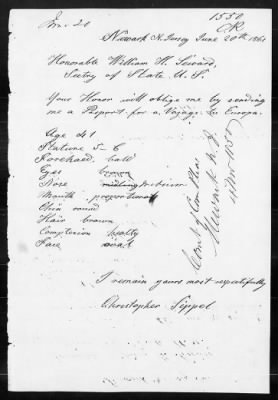 1550
Newark N. Jersey June 20th 1861
Honorable William H. Seward
Secty of State U. S.
Your Honor will oblige me by sending
me a Passport for a Voyage to Europa.
Age 41
Stature 5-6
Forehead bald
Eyes brown
Nose medium
Mouth proportionate
Chin round
Hair brown
Complexion healty
Face oval
Newark N. J.
I remain yours most respectfully
Christopher Sippel